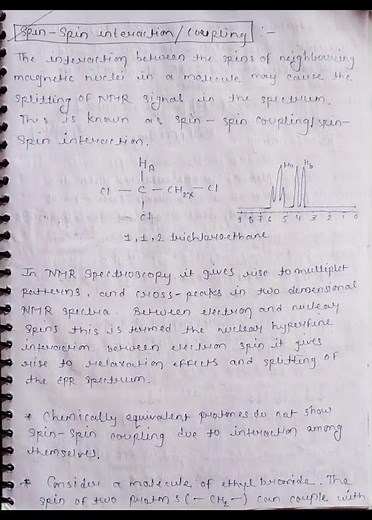 Spin-Spin interaction/coupling :-
The interaction between the spins of neighbouring
magnetic nuclei in a molecule may cause the
splitting of NMR signal in the spectrum.
This is known as spin-spin coupling/spin-
spin interaction.
HA
Cl — C — CH2X — Cl
Cl
9 8 7 6 5 4 3 2 1 0
1,1,2 trichloroethane
In NMR spectroscopy it gives rise to multiplet
patterns, and cross-peaks in two demensional
NMR spectra. Between electron and nuclear
spins this is termed the nuclear hyperfine
interaction. between electron spin it gives
rise to relaxation effects and splitting of
the EPR spectrum.
* Chemically equivalent protones do not show
spin-spin coupling due to interaction among
themselves.
* Consider a molecule of ethyl bromide. The
spin of two protons (-CH2-) can couple with